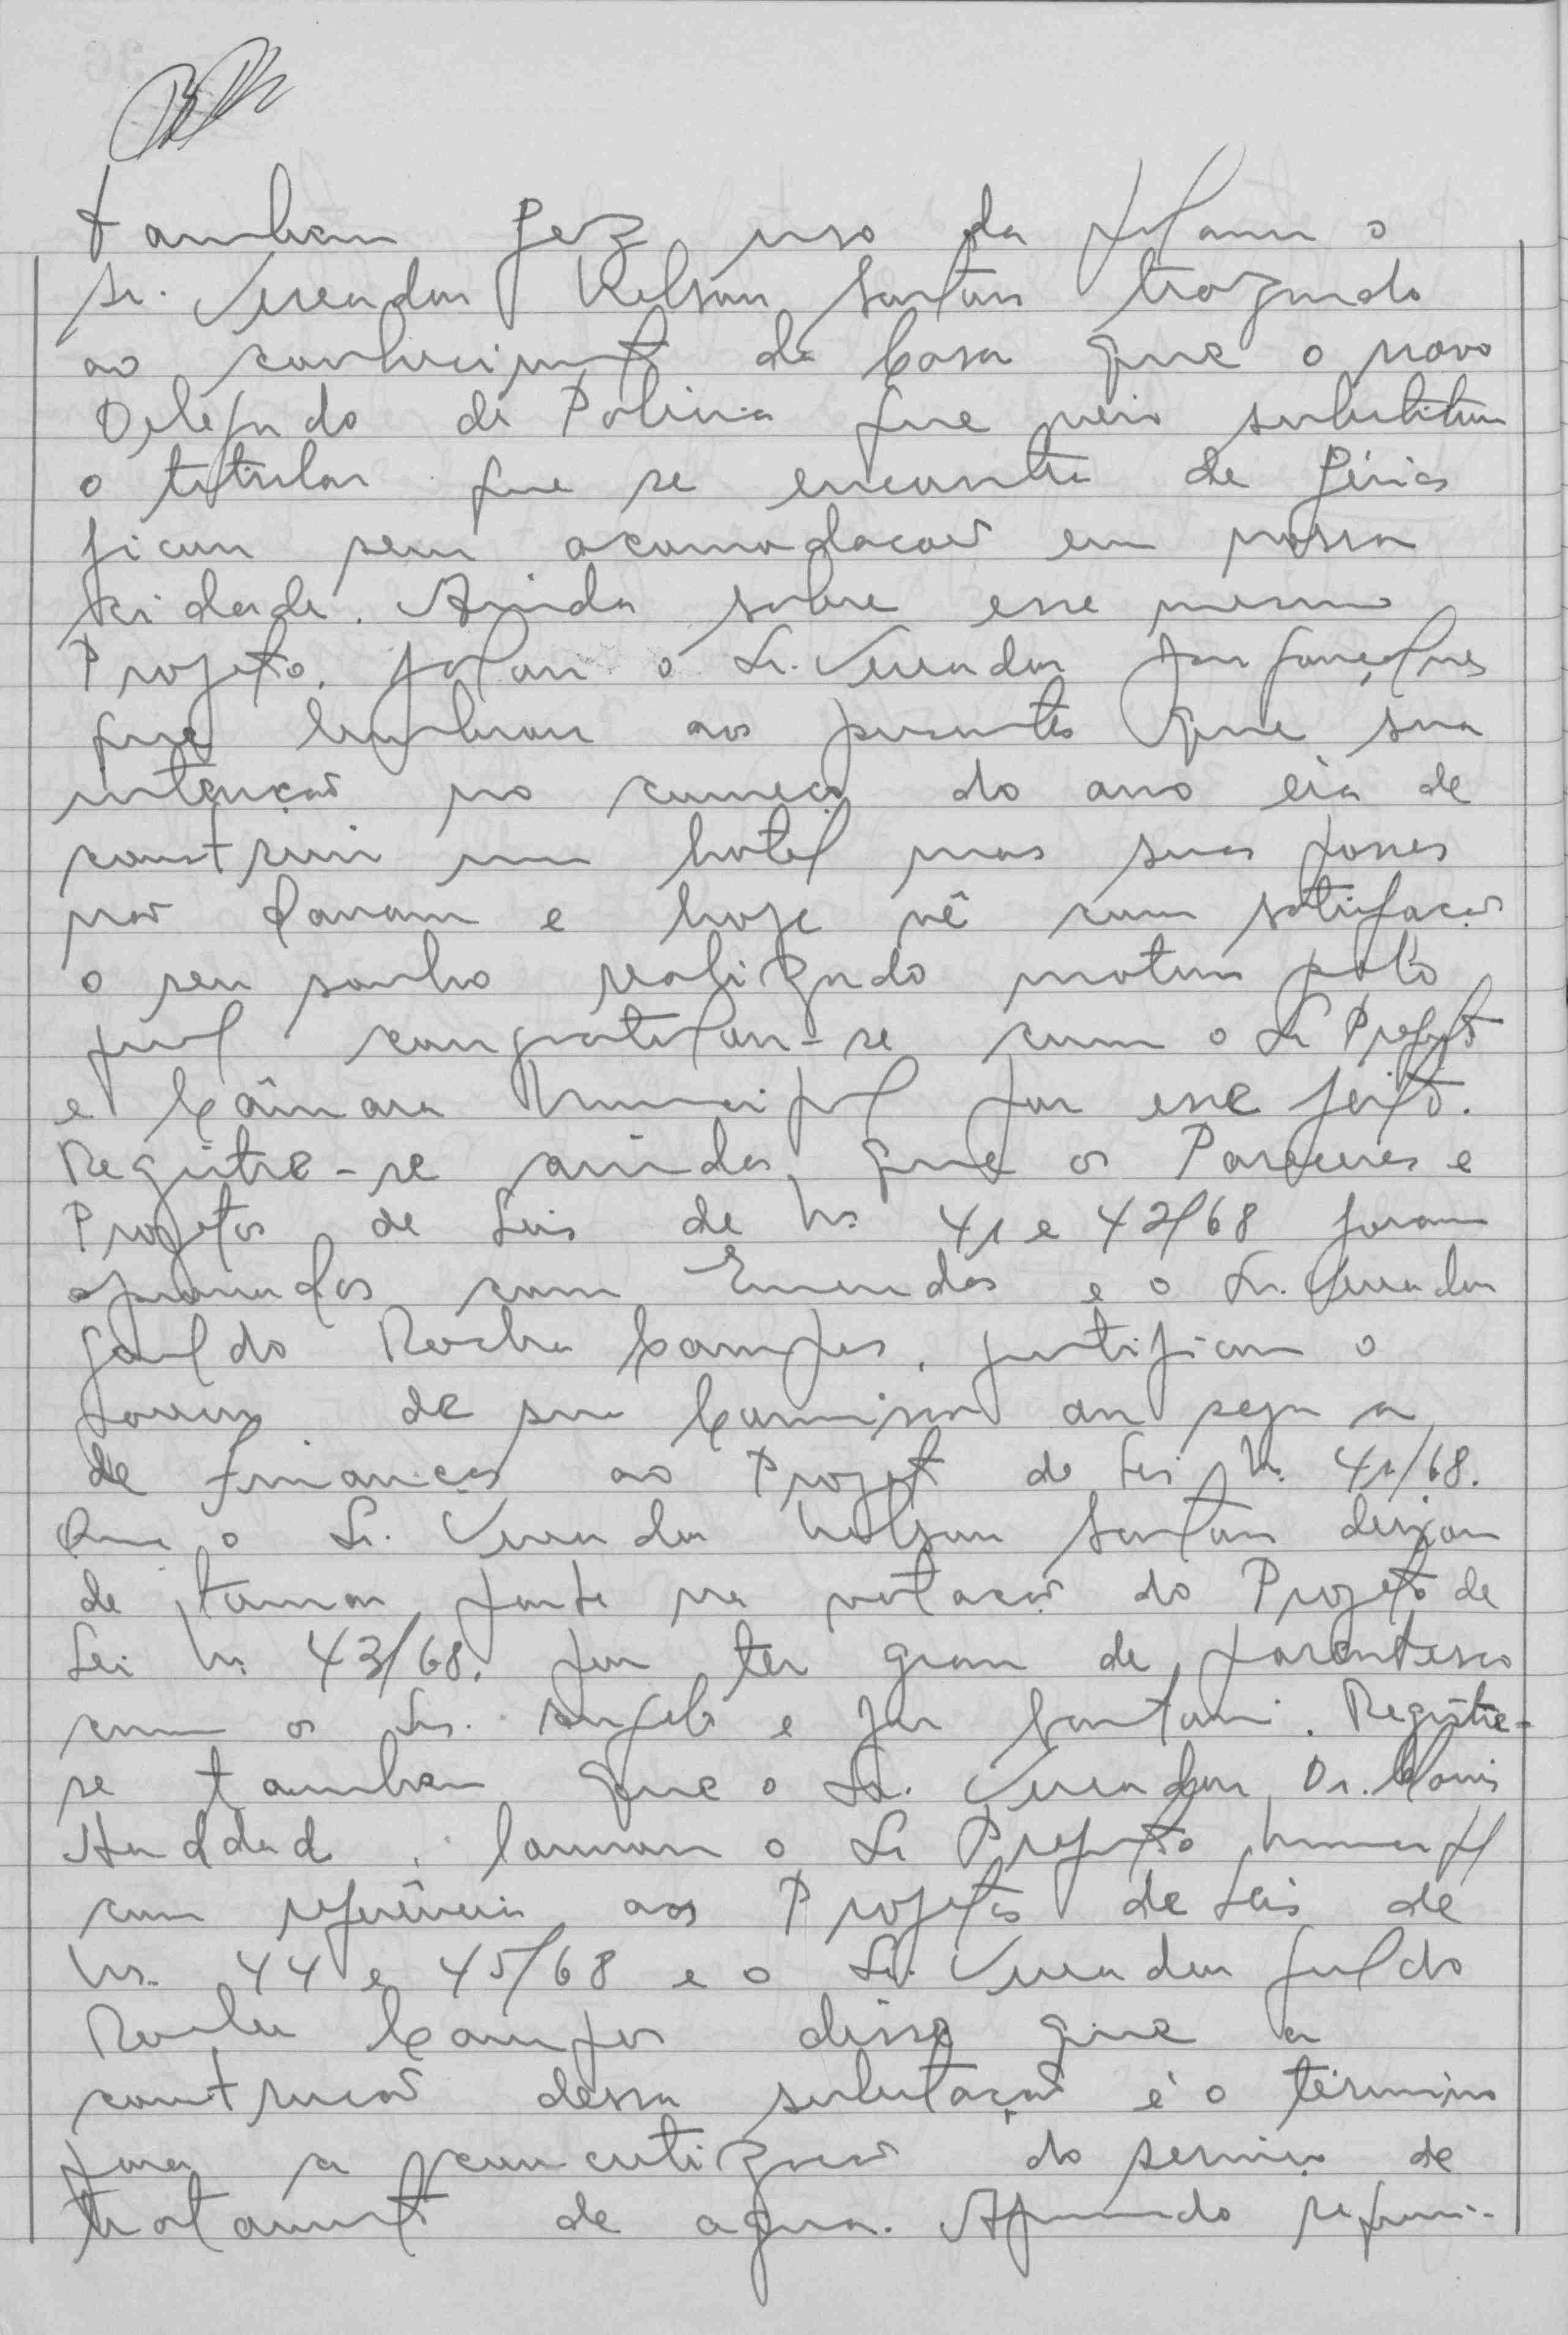 tambem fez uso da palavra o
Sr. Vereador Nelson Santan trazendo
ao conhecimento da Casa que o novo
Delegado de Policia que veio substituir
o titular que se encontra de férias
ficou sem acomodacaõ em nossa
cidade. Ainda sobre esse mesmo
Projeto, falou o Sr. Vereador
que lembrou aos presentes que sua
intençaõ no começo do ano era de
construir um hotel mas suas posses
naõ davam e hoje vê com satisfaçaõ
o seu sonho realizado motivo pelo
qual congratulou-se com o Sr Prefeito
e Câmara Municipal por esse feito.
Registre-se ainda que os Pareceres e
Projetos de Leis de Ns. 41 e 42/68 foram
aprovados com Emendas e o Sr. Vereador
Geraldo Rocha Campos, justificou o
parecer de sua Comissaõ ou seja a
de Finanças ao Projeto de Lei N. 41/68.
Que o Sr. Vereador Nelson Santan deixou
de tomar parte na votaçaõ do Projeto de
Lei N. 43/68, por ter grau de parentesco
com os Srs. Angelo e Santan. Registre-
se tambem que o Sr. Vereador Dr.
Haddad, louvou o Sr Prefeito Municipal
com referência aos Projetos de Leis de
Ns. 44 e 45/68 e o Sr. Vereador Geraldo
Rocha Campos disse que a
construcaõ dessa subestaçaõ é o término
para a concretizaçaõ do serviço de
tratamento de agua. Aprovado requeri-